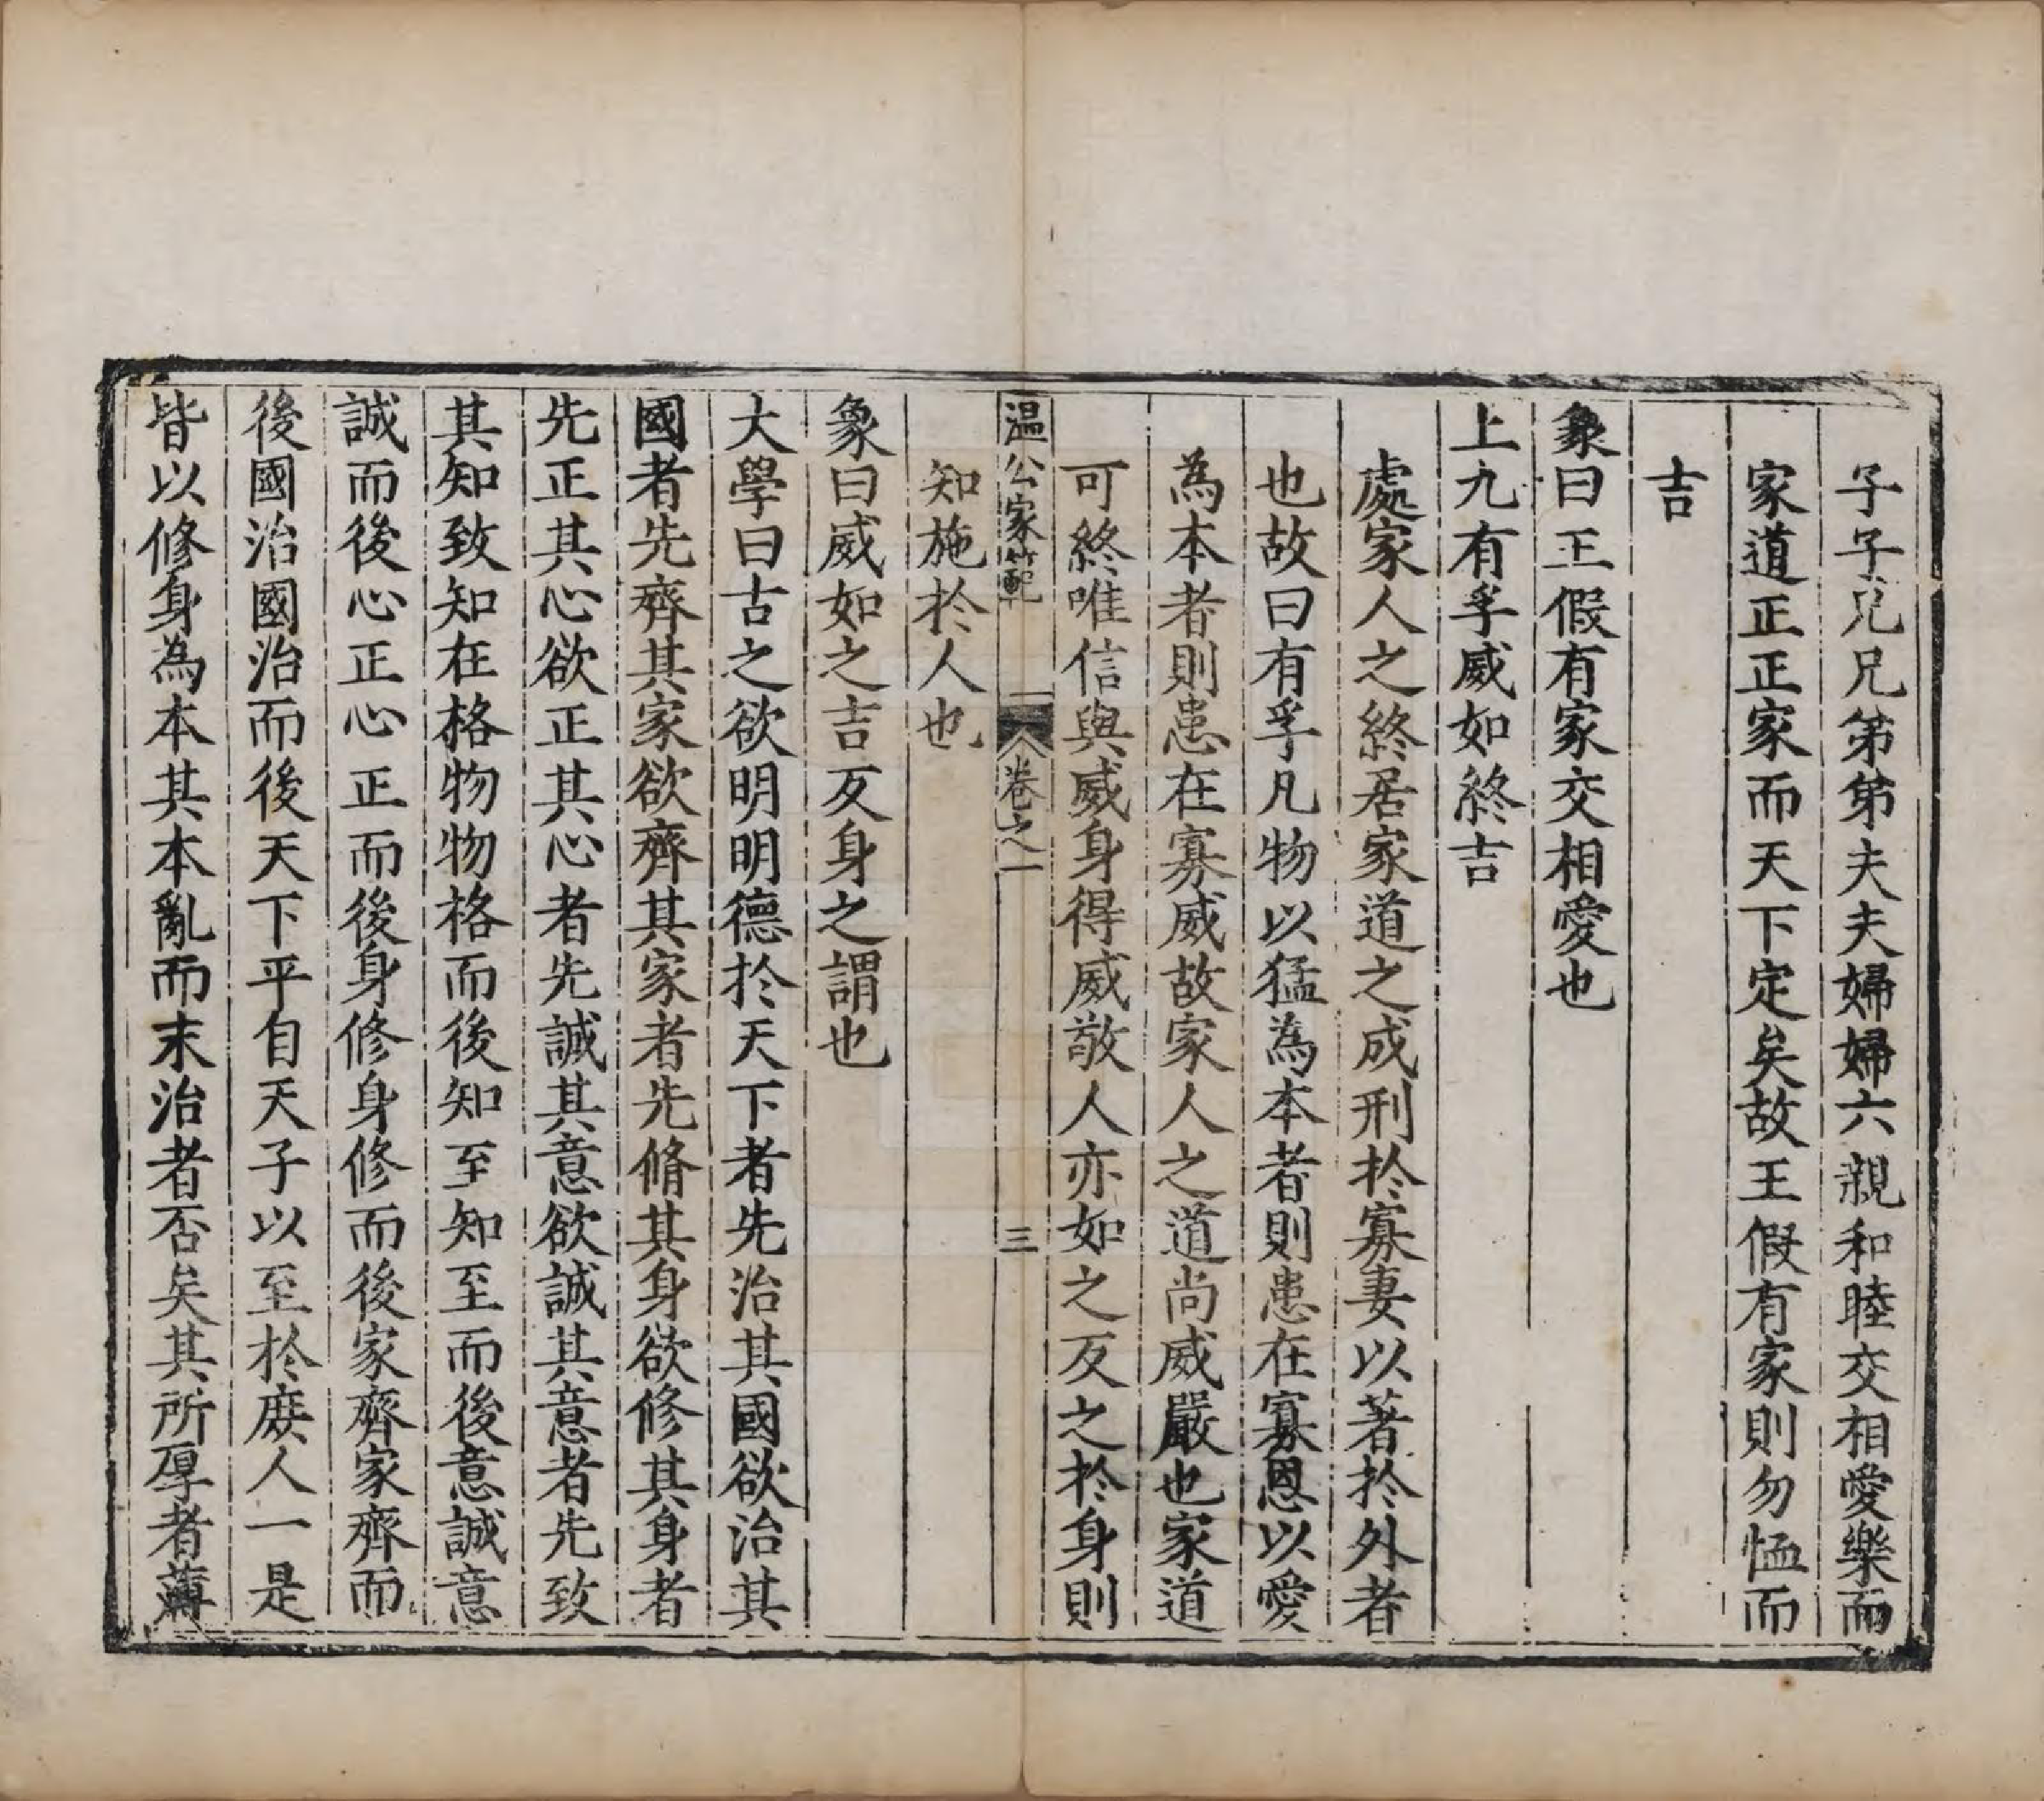 子子兄兄弟弟夫夫婦婦六親和睦交相愛樂而
家道正正家而天下定矣故王假有家則勿恤而
吉
象曰王假有家交相愛也
上九有孚威如終吉
處家人之終居家道之成刑於寡妻以著於外者
也故曰有孚凡物以猛為本者則患在寡恩以愛
為本者則患在寡威故家人之道尚威嚴也家道
可終唯信與威身得威敬人亦如之反之於身則
溫公家範
卷之一
三
知施於人也
象曰威如之吉反身之謂也
大學曰古之欲明明德於天下者先治其國欲治其
國者先齊其家欲齊其家者先脩其身欲修其身者
先正其心欲正其心者先誠其意欲誠其意者先致
其知致知在格物物格而後知至知至而後意誠意
誠而後心正心正而後身修身修而後家齊家齊而
後國治國治而後天下平自天子以至於庻人一是
皆以修身為本其本亂而末治者否矣其所厚者薄